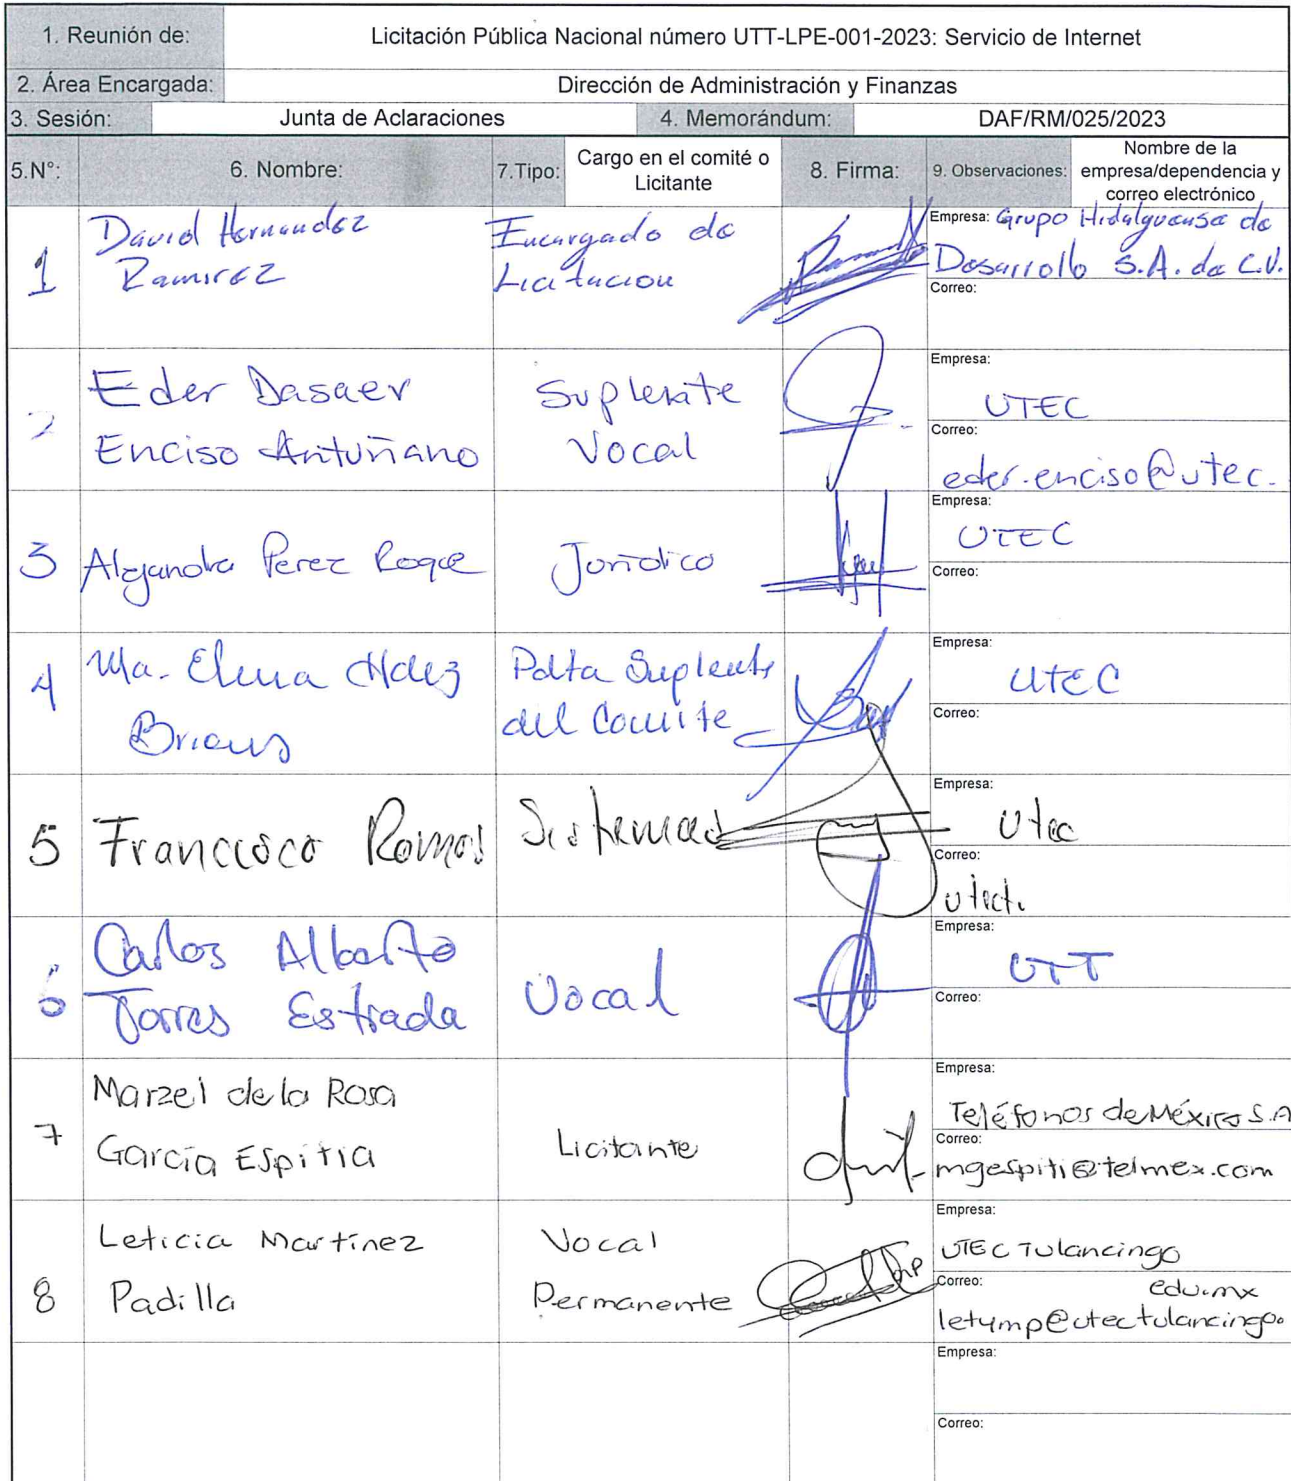 1. Reunión de: Licitación Pública Nacional número UTT-LPE-001-2023: Servicio de Internet
2. Área Encargada: Dirección de Administración y Finanzas
3. Sesión: Junta de Aclaraciones 4. Memorándum: DAF/RM/025/2023
5.N°: 6. Nombre: 7.Tipo: Cargo en el comité o Licitante 8. Firma: 9. Observaciones: Nombre de la empresa/dependencia y correo electrónico
1 David Hernandez Ramirez
Encargado de Licitacion
Empresa: Grupo Hidalguense de
Desarrollo S.A. de C.V.
Correo:
2 Eder Dasaev
Enciso Antuñano
Suplente
Vocal
Empresa:
UTEC
Correo:
eder.enciso@utec.
3 Alejandra Perez Roque
Juridico
Empresa:
UTEC
Correo:
4 Ma. Elena Hdez
Pdta Suplente
del Comite
Empresa:
UTEC
Correo:
5 Francisco Ramos
Sistemas
Empresa:
Utec
Correo:
6 Carlos Alberto
Torres Estrada
Vocal
Empresa:
UTT
Correo:
7 Marzel de la Rosa
García Espitia
Licitante
Empresa:
Teléfonos de México S.A
Correo:
mgespiti@telmex.com
8 Leticia Martínez
Padilla
Vocal
Permanente
Empresa:
UTEC Tulancingo
Correo:
edu.mx
letymp@utectulancingo.
Empresa:
Correo: